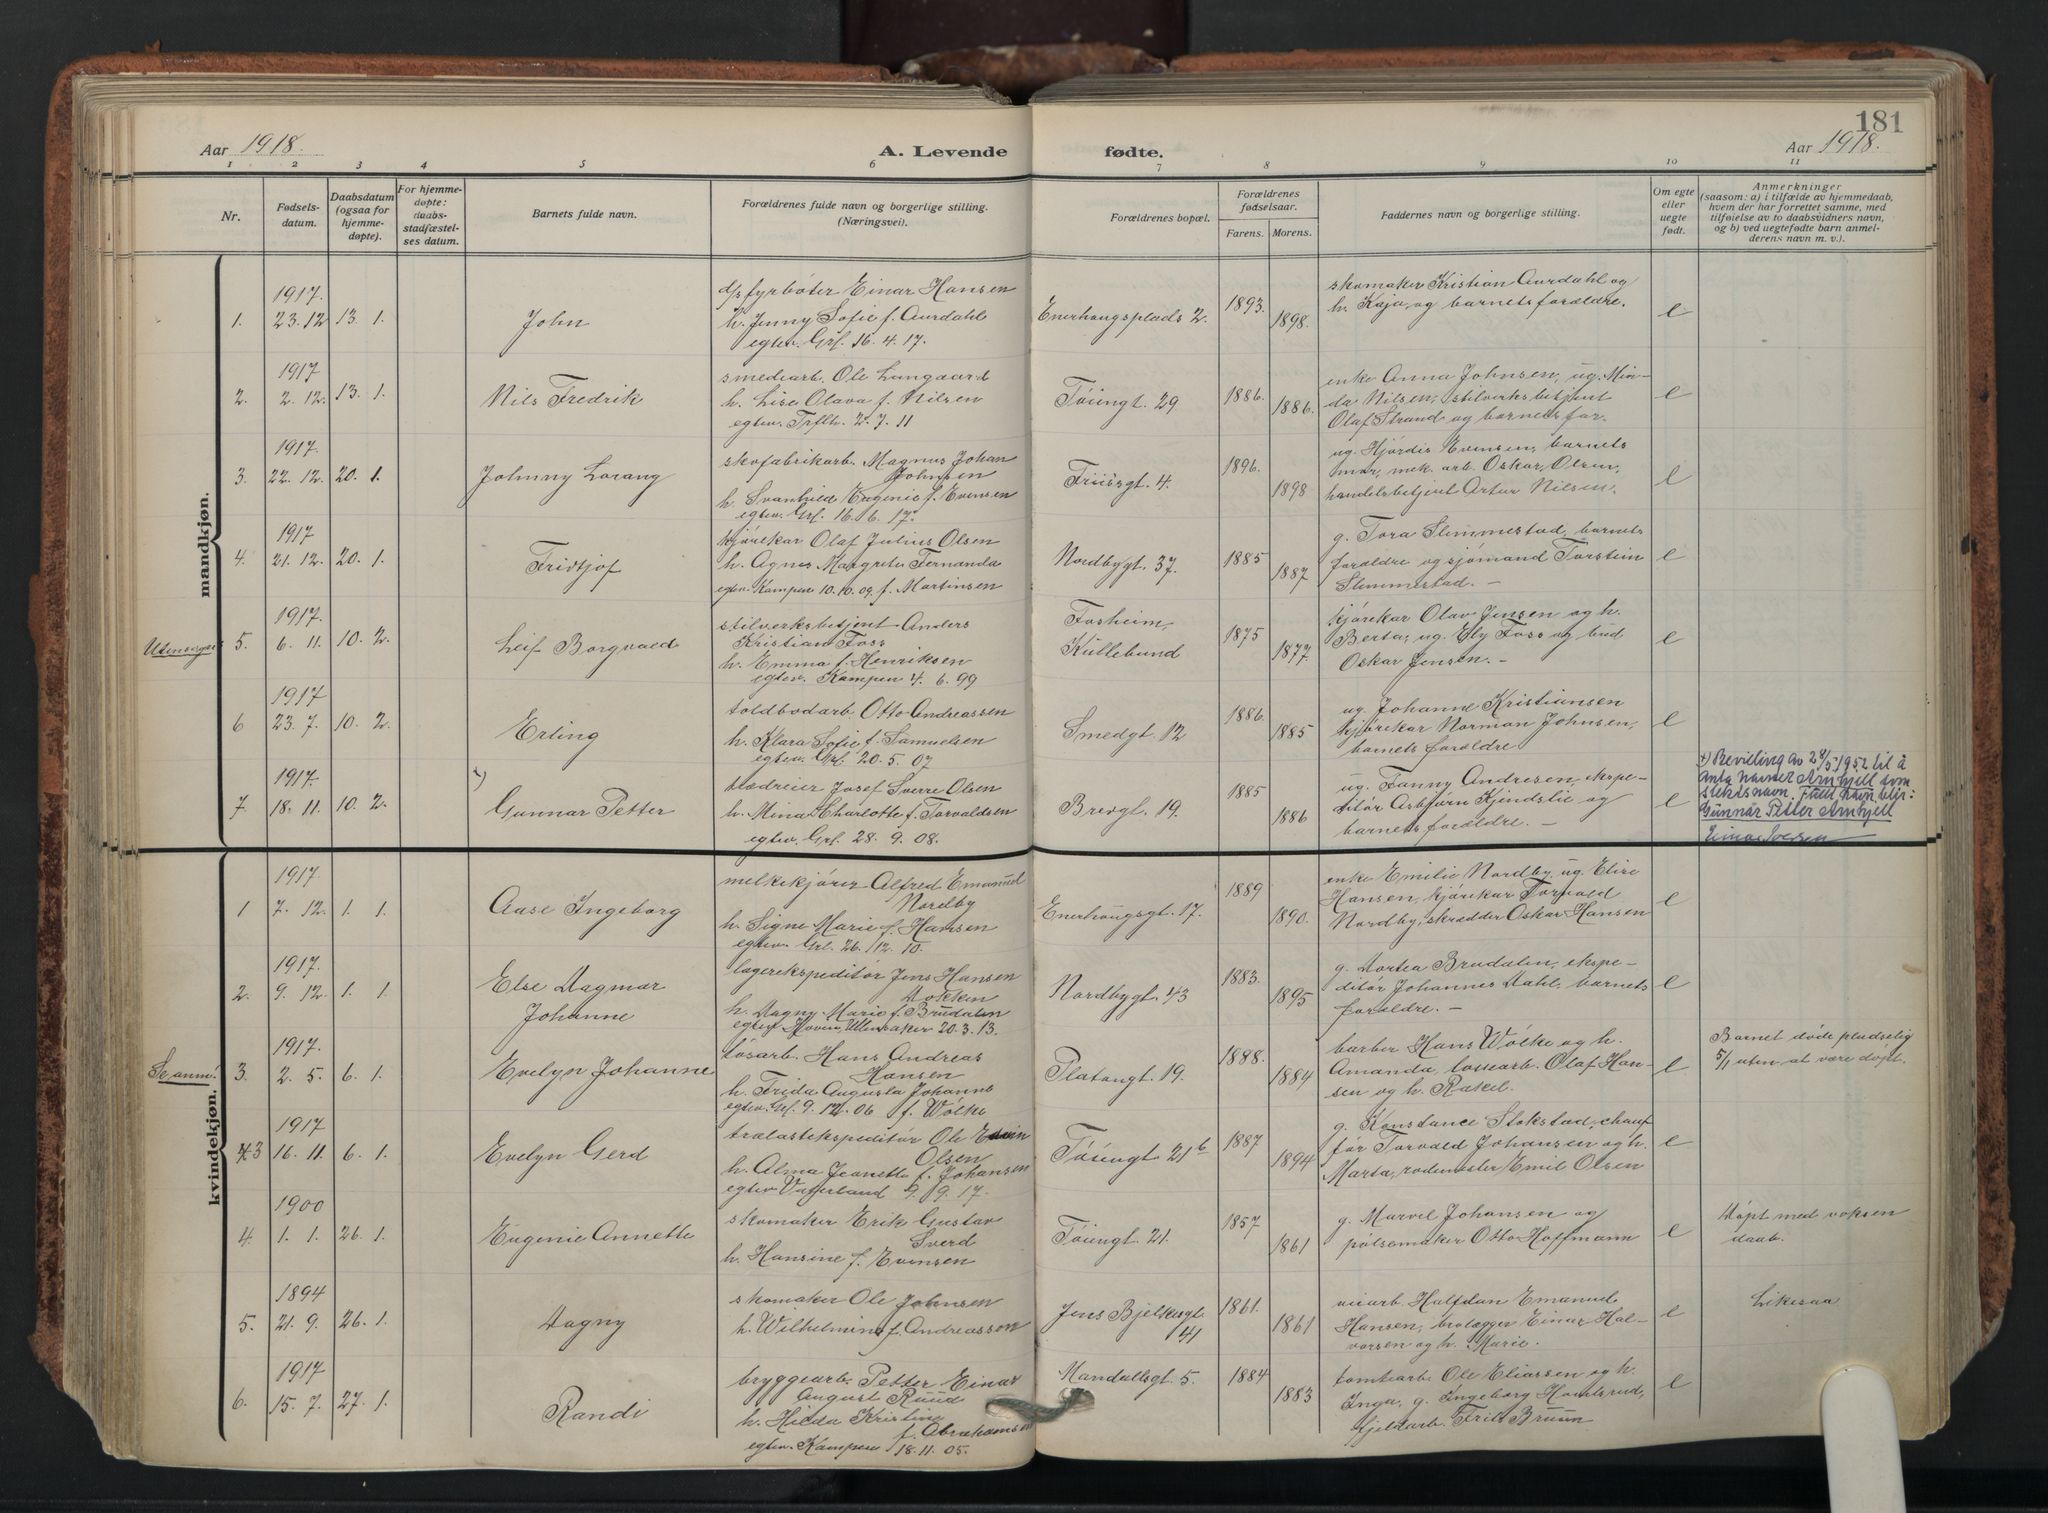 181
Aar 1918.
A. Levende
fødte.
Aar 1918.
1 2 3 4 5 6 7 8 9 10 11
Nr.
Fødselsdatum.
Daabsdatum (ogsaa for hjemmedøpte).
For hjemmedøpte: daabsstadfæstelses datum.
Barnets fulde navn.
Forældrenes fulde navn og borgerlige stilling. (Næringsvei).
Forældrenes bopæl.
Forældrenes fødselsaar.
Farens. Morens.
Faddernes navn og borgerlige stilling.
Om egte eller uegte født.
Anmerkninger
(saasom: a) i tilfælde av hjemmedaab,
hvem der har forrettet samme, med
tilføielse av to daabsvidners navn,
og b) ved uegtefødte barn anmelderens navn m. v.).
mandkjøn.
1. 1917. 23.12 13. 1. John
fyrbøter Einar Hansen
h. Jenny Sofie f. Aurdahl
egtev. Grl. 16. 4. 17.
Enerhaugsplads 2. 1893. 1898.
skomaker Kristian Aurdahl og
h. Kaja, og barnets forældre. e
2. 1917 2. 12. 13. 1. Nils Fredrik
smedarb. Ole Langaard
h. Lise Olava f. Nilsen
egtev. Trflh. 2. 7. 11
Tøiengt. 29 1886. 1886.
enke Anna Johnsen, ug. Min-
da Nilsen, stilverksbetjent
Olaf Strand og barnets far. e
3. 1917. 22. 12. 20. 1. Johnny Lorang
skofabrikarb. Magnus Johan
Johnsen
h. Svanhild Eugenie f. Evensen
egtev. Grl. 16. 6. 17.
Friisgt. 4. 1896. 1898
ug. Hjørdis Evensen, barnets
mor, mek. arb. Oskar Olsen,
handelsbetjent Artur Nilsen. e
4. 1917 21. 12. 20. 1. Fridtjof
kjørekar Olaf Julius Olsen
h. Agnes Margrete Fernanda
egtev. Kampen 10. 10. 09. f. Martinsen
Nordbygt. 37. 1885 1887
g. Tora Slemmestad, barnets
forældre og sjømand Torstein
Slemmestad. – e
5. 1917. 6. 11. 10. 2. Leif Borgvald
stilverksbetjent Anders
Kristian Foss
h. Emma f. Henriksen
egtev. Kampen 4. 6. 99
Fosheim,
Kullebund 1875 1877
kjørekar Olav Jensen og h.
Berta, ug. Ely Foss og bud
Oskar Jensen. – e
6 1917 23. 7. 10. 2. Erling
toldbodarb. Otto Andreassen
h. Klara Sofie f. Samuelsen
egtev. Grl. 20. 5. 07
Smedgt. 12 1886. 1885
ug. Johanne Kristiansen
kjørekar Norman Johnsen,
barnets forældre e
7. 1917 18. 11. 10. 2. Gunnar Petter
trædreier Josef Sverre Olsen
h. Mina Charlotte f. Torvaldsen
egtev. Grl. 28. 9. 08.
Brevgt. 19. 1885 1886
ug. Fanny Andresen, ekspe-
ditør Asbjørn Kjindslie og
barnets forældre. – e
x) Bevilling av 28/5 1952 til å
anta navnet Arnfjell som
slektsnavn. Fullt navn blir:
Gunnar Petter Arnfjell
kvindekjøn.
1 1917. 7. 12. 1. 1. Aase Ingeborg
melkekjører Alfred Emanuel
Nordby
h. Signe Marie f. Hansen
egtev. Grl. 26. 12. 10.
Enerhaugsgt. 17. 1889 1890.
enke Emilie Nordby, ug. Elise
Hansen, kjørekar Torvald
Nordby, skrædder Oskar Hansen e
2. 1917. 9. 12. 1. 1. Else Dagmar
Johanne
lagerekspeditør Jens Hansen
Dokken
h. Dagny Marie f. Brudalen
egtev. Hoven, Ullensaker 20. 3. 13.
Nordbygt. 43 1883. 1895
g. Dortea Brudalen, ekspe-
ditør Johannes Dahl, barnets
forældre. – e
3. 1917. 2. 5. 6. 1. Evelyn Johanne
løsarb. Hans Andreas
Hansen
h. Frida Augusta Johanne
egtev. Grl. 9. 12. 06 f. Wölke
Platougt. 19. 1888. 1884
barber Hans Wölke og h.
Amanda, lossearb. Olaf Han-
sen og h. Rakel. e
Barnet døde pludselig
5/1 uten at være døpt.
Se anm!
43 1917 16. 11. 6. 1. Evelyn Gerd
trælastekspeditør Ole Edvin
Olsen
h. Alma Jeanette f. Johansen
egtev. Vaterland 9. 9. 17.
Tøiengt. 21b 1887 1894
g. Konstance Stokstad, chauf
før Torvald Johansen og h.
Marta, rodemester Emil Olsen e
4. 1900 1. 1. 26. 1. Eugenie Annette
skomaker Erik Gustav
Sverd
h. Hansine f. Evensen
Tøiengt. 21. 1857 1861
g. Marvel Johansen og
pølsemaker Otto Hoffmann e
Døpt med voksen
daab.
5. 1894 21. 9. 26. 1. Dagny
skomaker Ole Johnsen
h. Wilhelmine f. Andreassen
Jens Bjelkesgt.
41 1861. 1861
Halfdan Emanuel
Hansen, brolægger Einar Hal-
vorsen og h. Marie. e
Likesaa
6. 1917 15. 7. 27. 1. Randi
bryggearb. Petter Einar
August Ruud
h. Hilda Kristine
f. Abrahamsen
egtev. Kampen 18. 11. 05.
Mandallsgt. 5. 1884 1883
tomtearb. Ole Eliassen og h.
Inga, g. Ingeborg Homlsrud,
Frits Bruun e